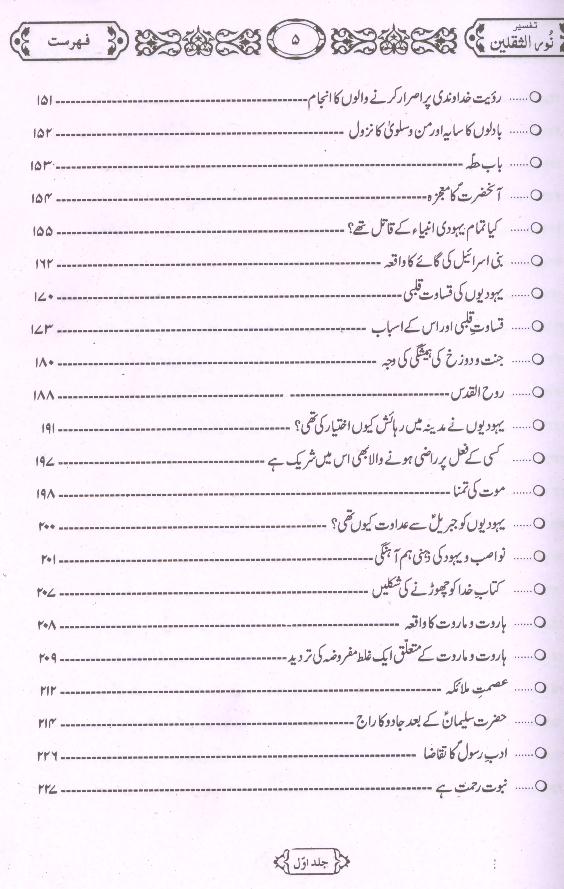 تفسیر
نُور الثقلین
۵
فہرست
رؤیت خداوندی پر اصرار کرنے والوں کا انجام ۱۵۱
بادلوں کا سایہ اور من و سلویٰ کا نزول ۱۵۲
باب حطّہ ۱۵۳
آنحضرتؐ کا معجزہ ۱۵۴
کیا تمام یہودی انبیاء کے قاتل تھے؟ ۱۵۵
بنی اسرائیل کی گائے کا واقعہ ۱۶۲
یہودیوں کی قساوت قلبی ۱۷۰
قساوتِ قلبی اور اس کے اسباب ۱۷۳
جنت و دوزخ کی ہمیشگی کی وجہ ۱۸۰
روح القدس ۱۸۸
یہودیوں نے مدینہ میں رہائش کیوں اختیار کی تھی؟ ۱۹۱
کسی کے فعل پر راضی ہونے والا بھی اس میں شریک ہے ۱۹۷
موت کی تمنا ۱۹۸
یہودیوں کو جبریلؑ سے عداوت کیوں تھی؟ ۲۰۰
نواصب و یہود کی ذہنی ہم آہنگی ۲۰۱
کتابِ خدا کو چھوڑنے کی شکلیں ۲۰۷
ہاروت و ماروت کا واقعہ ۲۰۸
ہاروت و ماروت کے متعلّق ایک غلط مفروضہ کی تردید ۲۰۹
عصمتِ ملائکہ ۲۱۲
حضرت سلیمانؑ کے بعد جادو کا راج ۲۱۴
ادبِ رسولؐ کا تقاضا ۲۲۶
نبوت رحمت ہے ۲۲۷
جلد اوّل